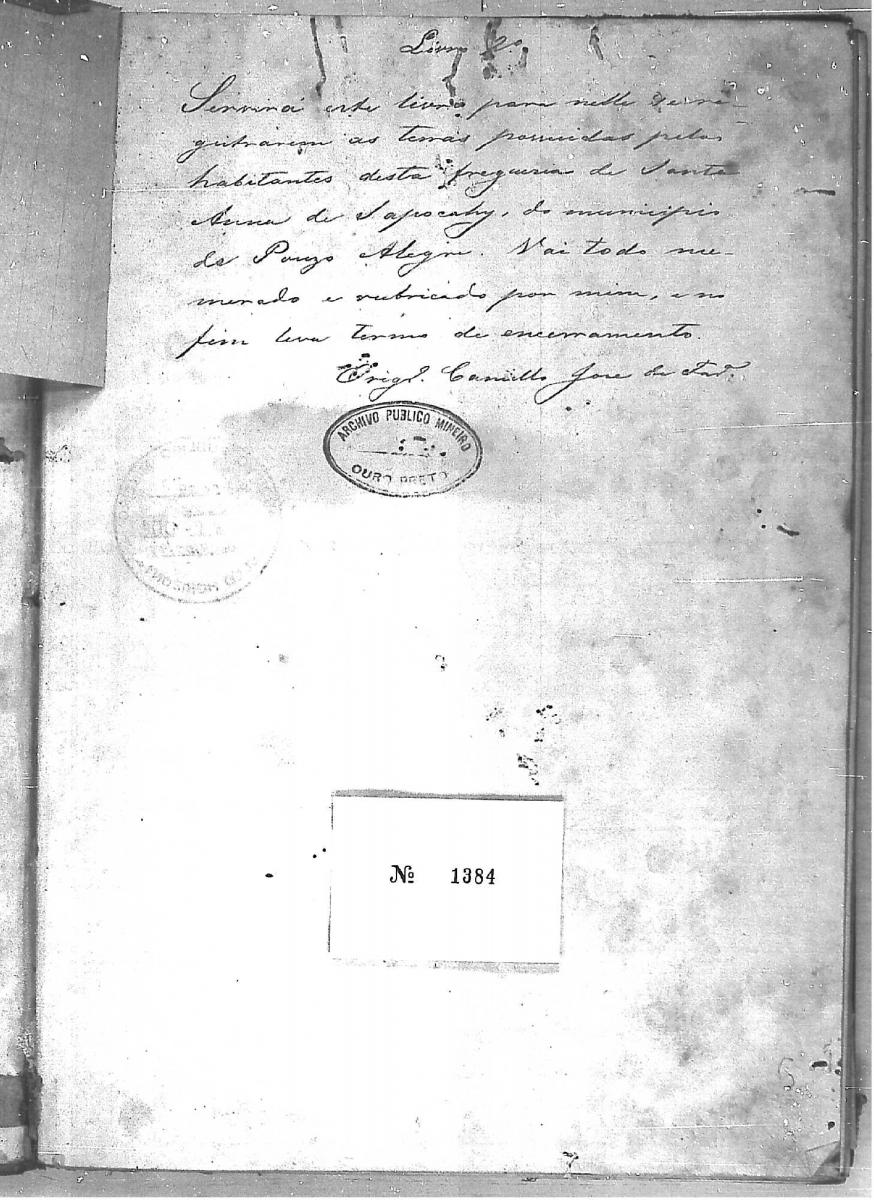 Livro 2º
Servirá este livro para nelle se re-
gistrarem as terras possuidas pelos
habitantes desta freguesia de Santa
Anna de Sapocahy, do municipio
de Pouzo Alegre. Vai todo nu-
merado e rubricado por mim, e no
fim leva termo de encerramento.
Camillo José de
ARCHIVO PUBLICO MINEIRO
OURO PRETO
Nº 1384